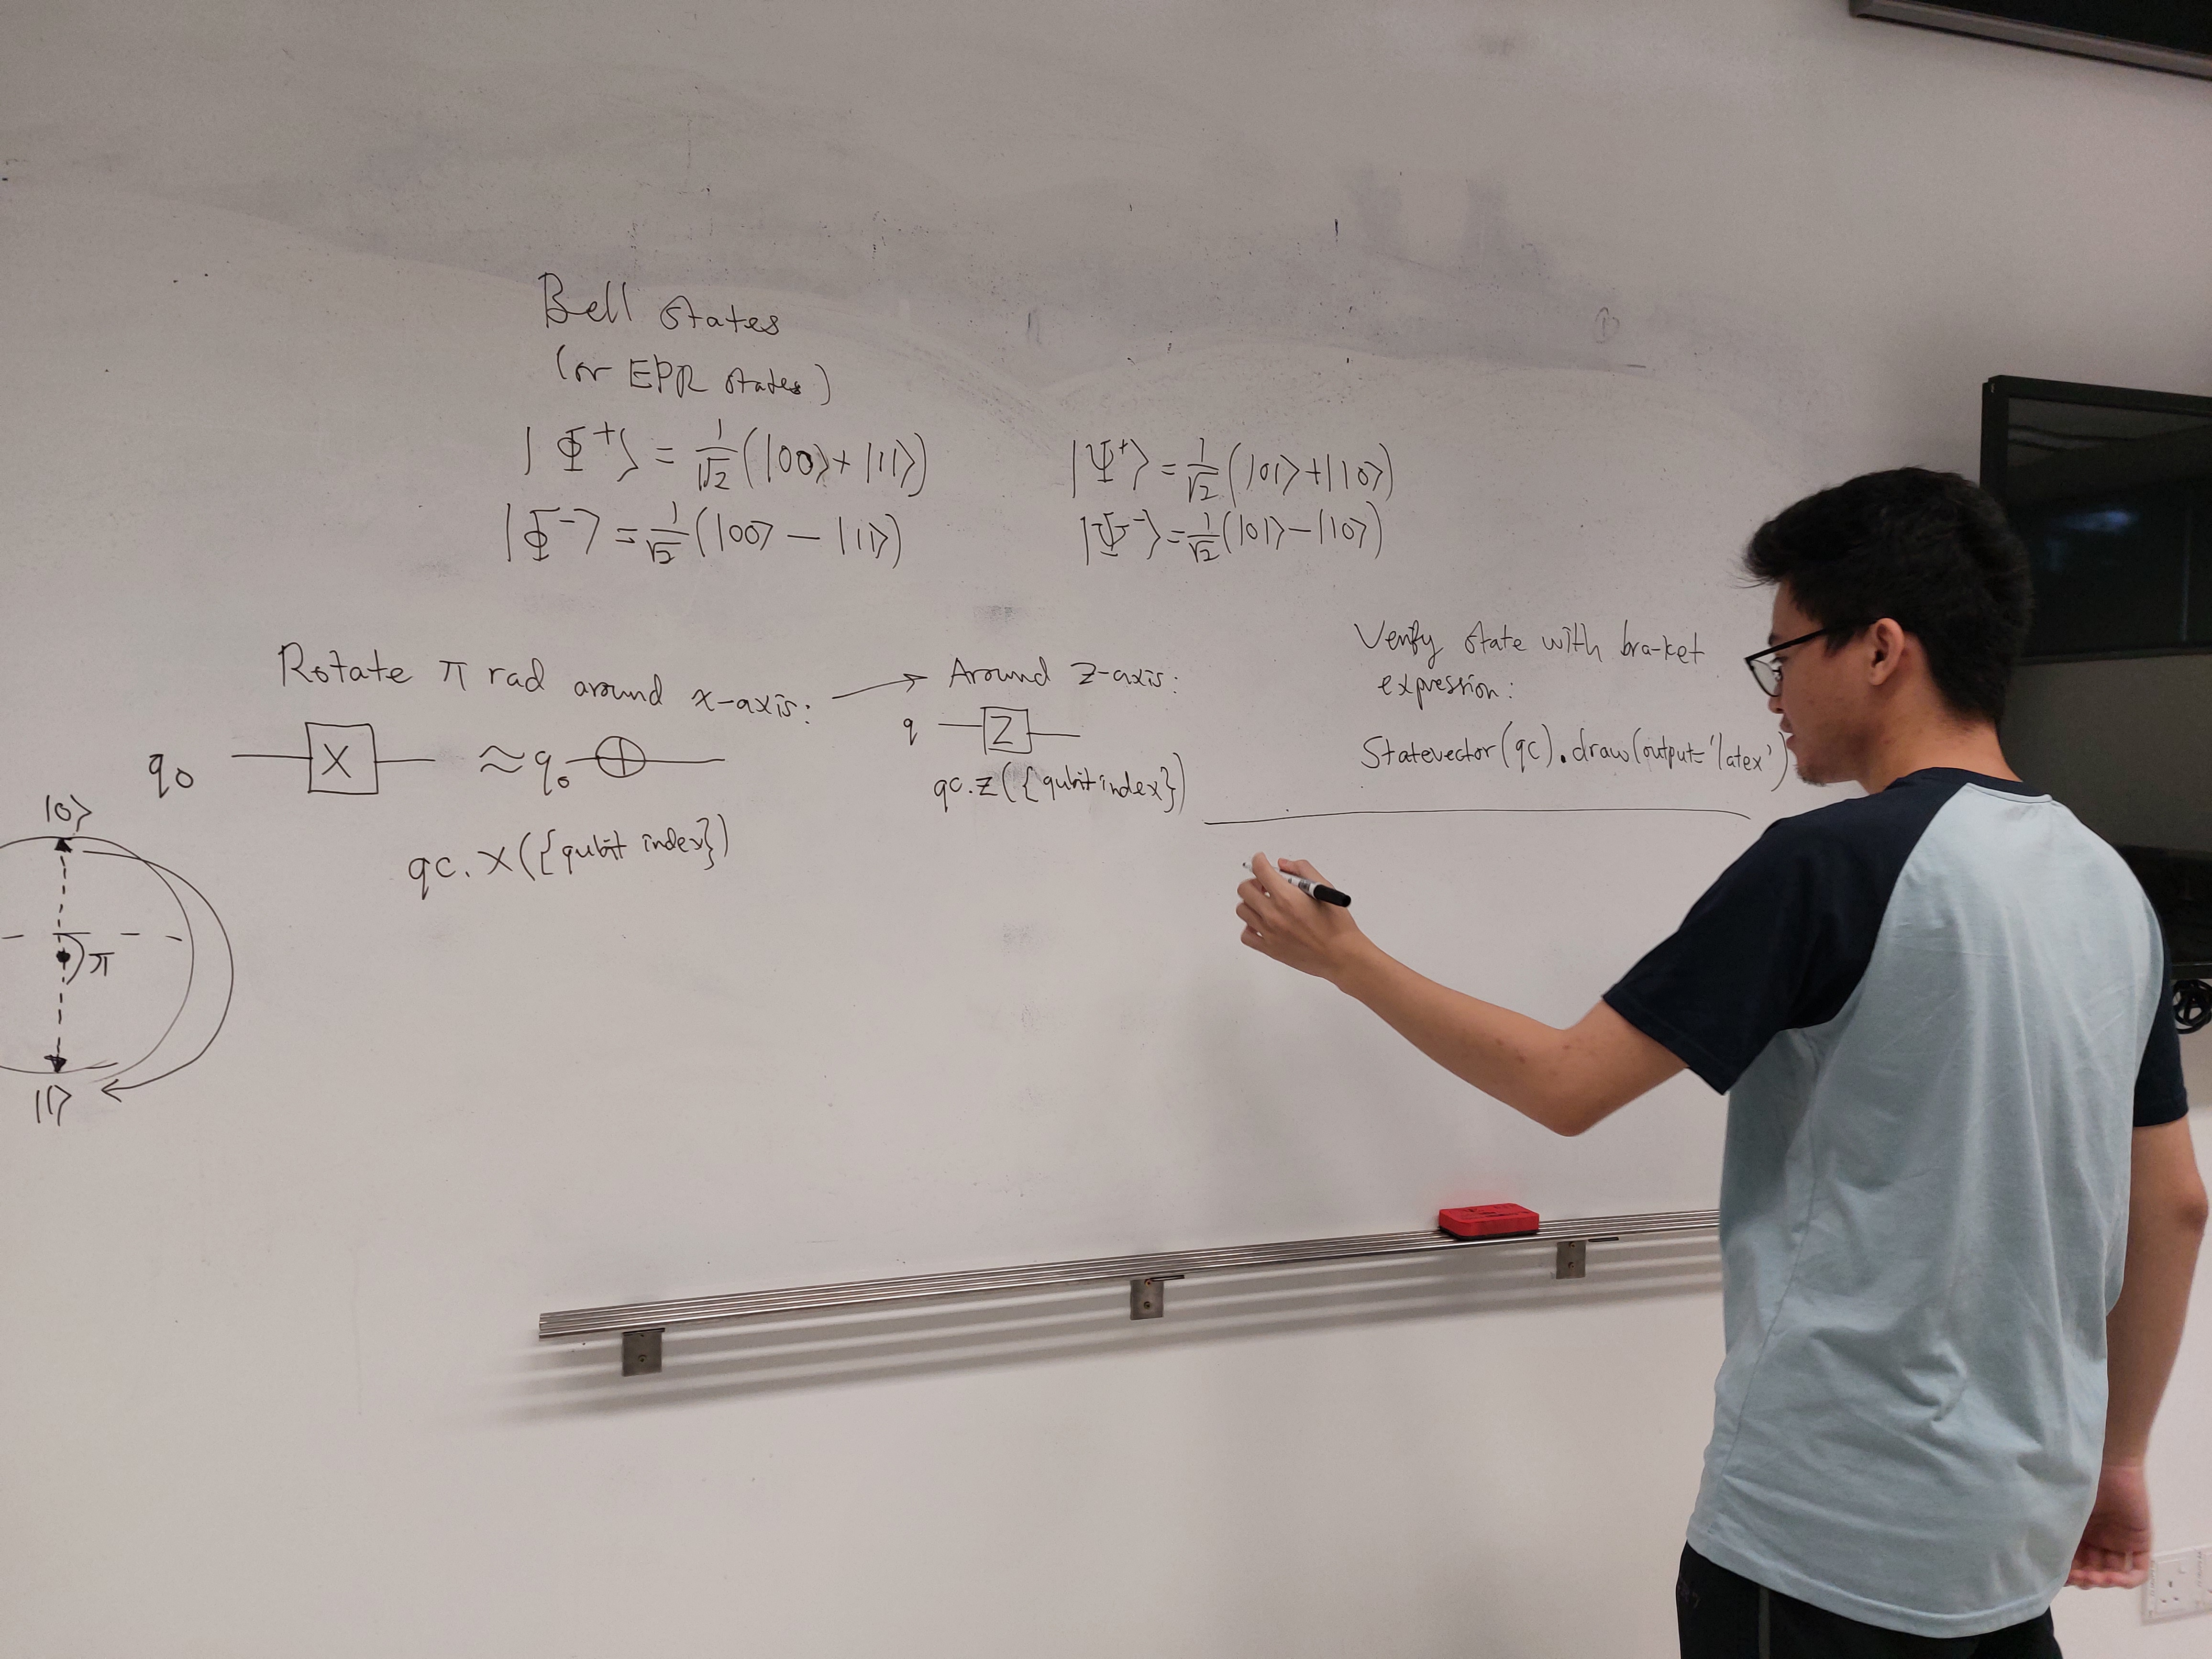 Bell states
(or EPR states)
|Φ⁺⟩ = 1/√2 (|00⟩ + |11⟩)
|Φ⁻⟩ = 1/√2 (|00⟩ − |11⟩)
|Ψ⁺⟩ = 1/√2 (|01⟩ + |10⟩)
|Ψ⁻⟩ = 1/√2 (|01⟩ − |10⟩)
Rotate π rad around x-axis: →
q₀ X ≈ q₀ ⊕
qc.x({qubit index})
|0⟩
π
|1⟩
Around z-axis:
q Z
qc.z({qubit index})
Verify state with bra-ket
expression:
Statevector(qc).draw(output='latex')